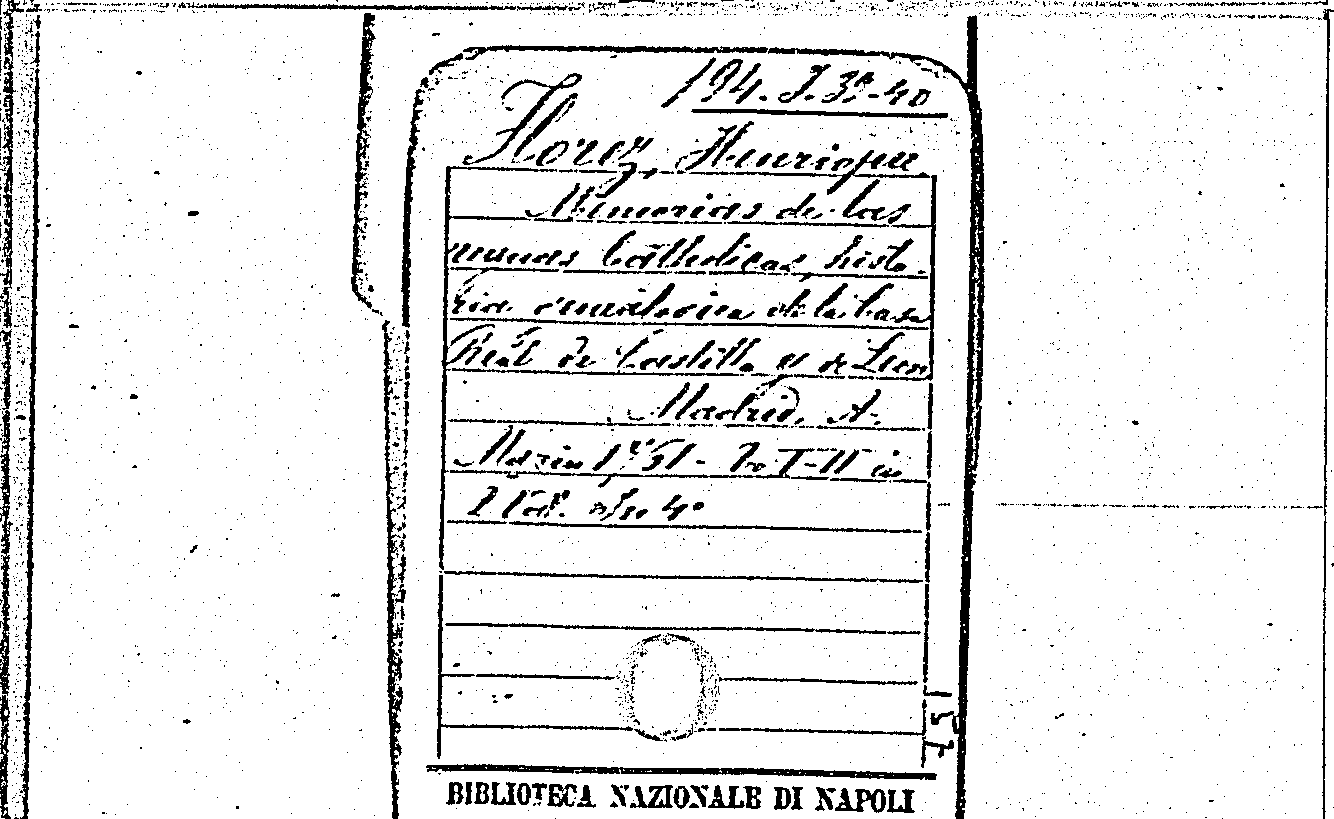 194. J. 39.-40
Florez, Henrique.
Memorias de las
reynas Catholicas, histo-
ria genealogica de la Casa
Real de Castilla y de Leon
Madrid, A.
Marin 1761 - To I-II in
2 Vol. 4º
151
BIBLIOTECA NAZIONALE DI NAPOLI